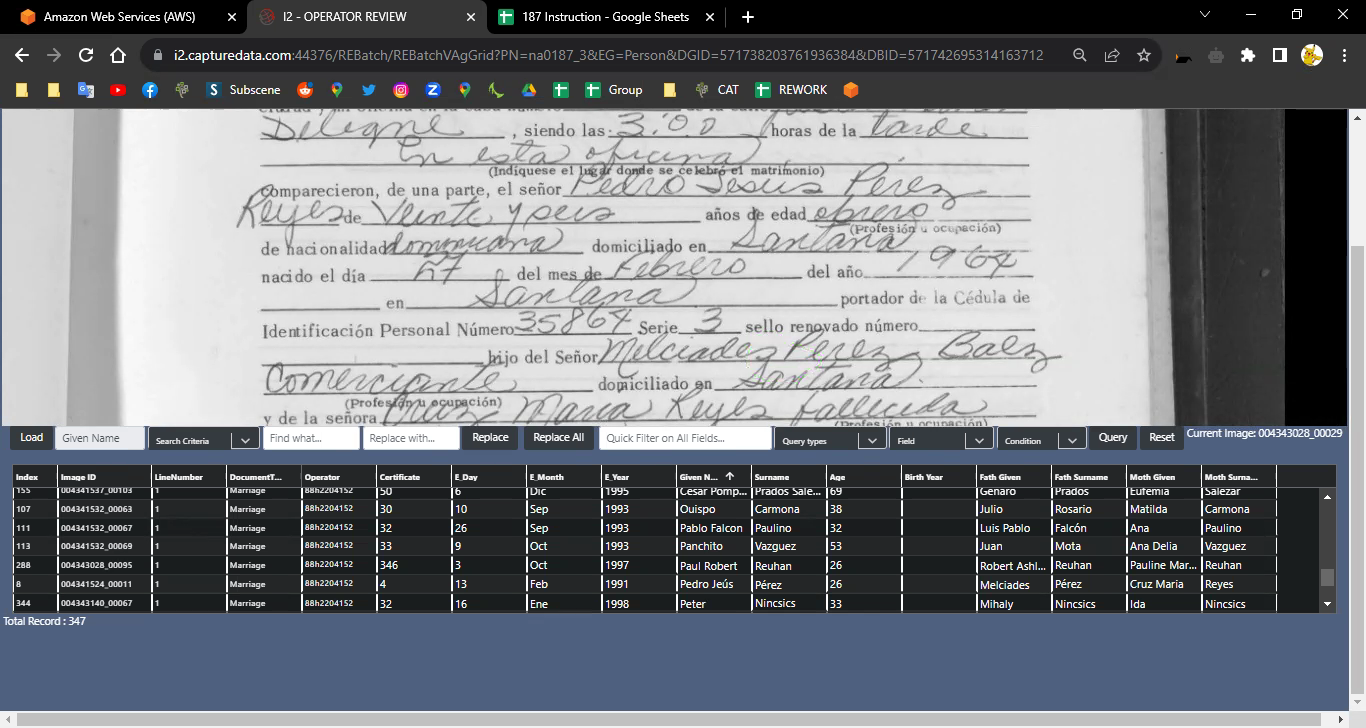 Amazon Web Services (AWS)
I2 - OPERATOR REVIEW
187 Instruction - Google Sheets
i2.capturedata.com:44376/REBatch/REBatchVAgGrid?PN=na0187_3&EG=Person&DGID=5717382037619363840&DBID=571742695314163712
Subscene
Group
CAT
REWORK
Deligne, siendo las 3:00 horas de la tarde
En esta oficina
(Indíquese el lugar donde se celebró el matrimonio)
comparecieron, de una parte, el señor Pedro Jesus Pérez
Reyes de Veinte y seis años de edad obrero
(Profesión u ocupación)
de nacionalidad dominicana domiciliado en Santana
nacido el día 27 del mes de Febrero del año 1964
en Santana portador de la Cédula de
Identificación Personal Número 35864 Serie 3 sello renovado número
hijo del Señor Melciades Perez Baez
Comerciante domiciliado en Santana.
(Profesión u ocupación)
y de la señora Cruz Maria Reyes fallecida
(Profesión u ocupación)
Load Given Name Search Criteria Find what... Replace with... Replace Replace All Quick Filter on All Fields... Query types Field Condition Query Reset Current Image: 004343028_00029
Index Image ID LineNumber DocumentT... Operator Certificate E_Day E_Month E_Year Given N... Surname Age Birth Year Fath Given Fath Surname Moth Given Moth Surna...
155 004341537_00103 1 Marriage 88h2204152 50 6 Dic 1995 Cesar Pomp... Prados Sale... 69 Genaro Prados Eufemia Salezar
107 004341532_00063 1 Marriage 88h2204152 30 10 Sep 1993 Ouispo Carmona 38 Julio Rosario Matilda Carmona
111 004341532_00067 1 Marriage 88h2204152 32 26 Sep 1993 Pablo Falcon Paulino 32 Luis Pablo Falcón Ana Paulino
113 004341532_00069 1 Marriage 88h2204152 33 9 Oct 1993 Panchito Vazguez 53 Juan Mota Ana Delia Vazguez
288 004343028_00095 1 Marriage 88h2204152 346 3 Oct 1997 Paul Robert Reuhan 26 Robert Ashl... Reuhan Pauline Mar... Reuhan
8 004341524_00011 1 Marriage 88h2204152 4 13 Feb 1991 Pedro Jeús Pérez 26 Melciades Pérez Cruz Maria Reyes
344 004343140_00067 1 Marriage 88h2204152 32 16 Ene 1998 Peter Nincsics 33 Mihaly Nincsics Ida Nincsics
Total Record : 347